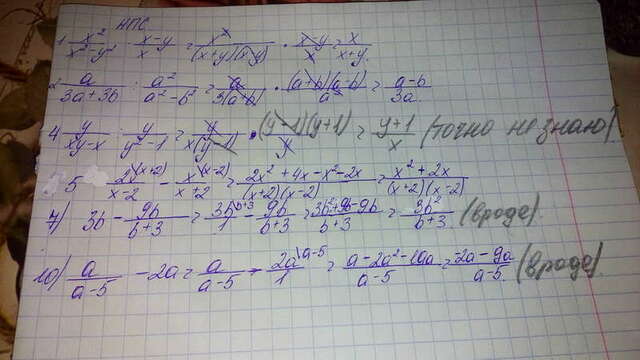 НПС
1 x²/(x²-y²) · (x-y)/x = x²/((x+y)(x-y)) · (x-y)/x = x/(x+y)
2 a/(3a+3b) : a²/(a²-b²) = a/(3(a+b)) · ((a+b)(a-b))/a² = (a-b)/(3a)
4 y/(xy-x) : y/(y²-1) = y/(x(y-1)) · ((y-1)(y+1))/y = (y+1)/x (точно не знаю)
5 2x\(x+2)/(x-2) - x\(x-2)/(x+2) = (2x²+4x-x²-2x)/((x+2)(x-2)) = (x²+2x)/((x+2)(x-2))
7) 3b - 9b/(b+3) = 3b\b+3/1 - 9b/(b+3) = (3b²+9b-9b)/(b+3) = 3b²/(b+3) (вроде)
10) a/(a-5) - 2a = a/(a-5) - 2a\a-5/1 = (a-2a²-10a)/(a-5) = (-2a-9a)/(a-5) (вроде)